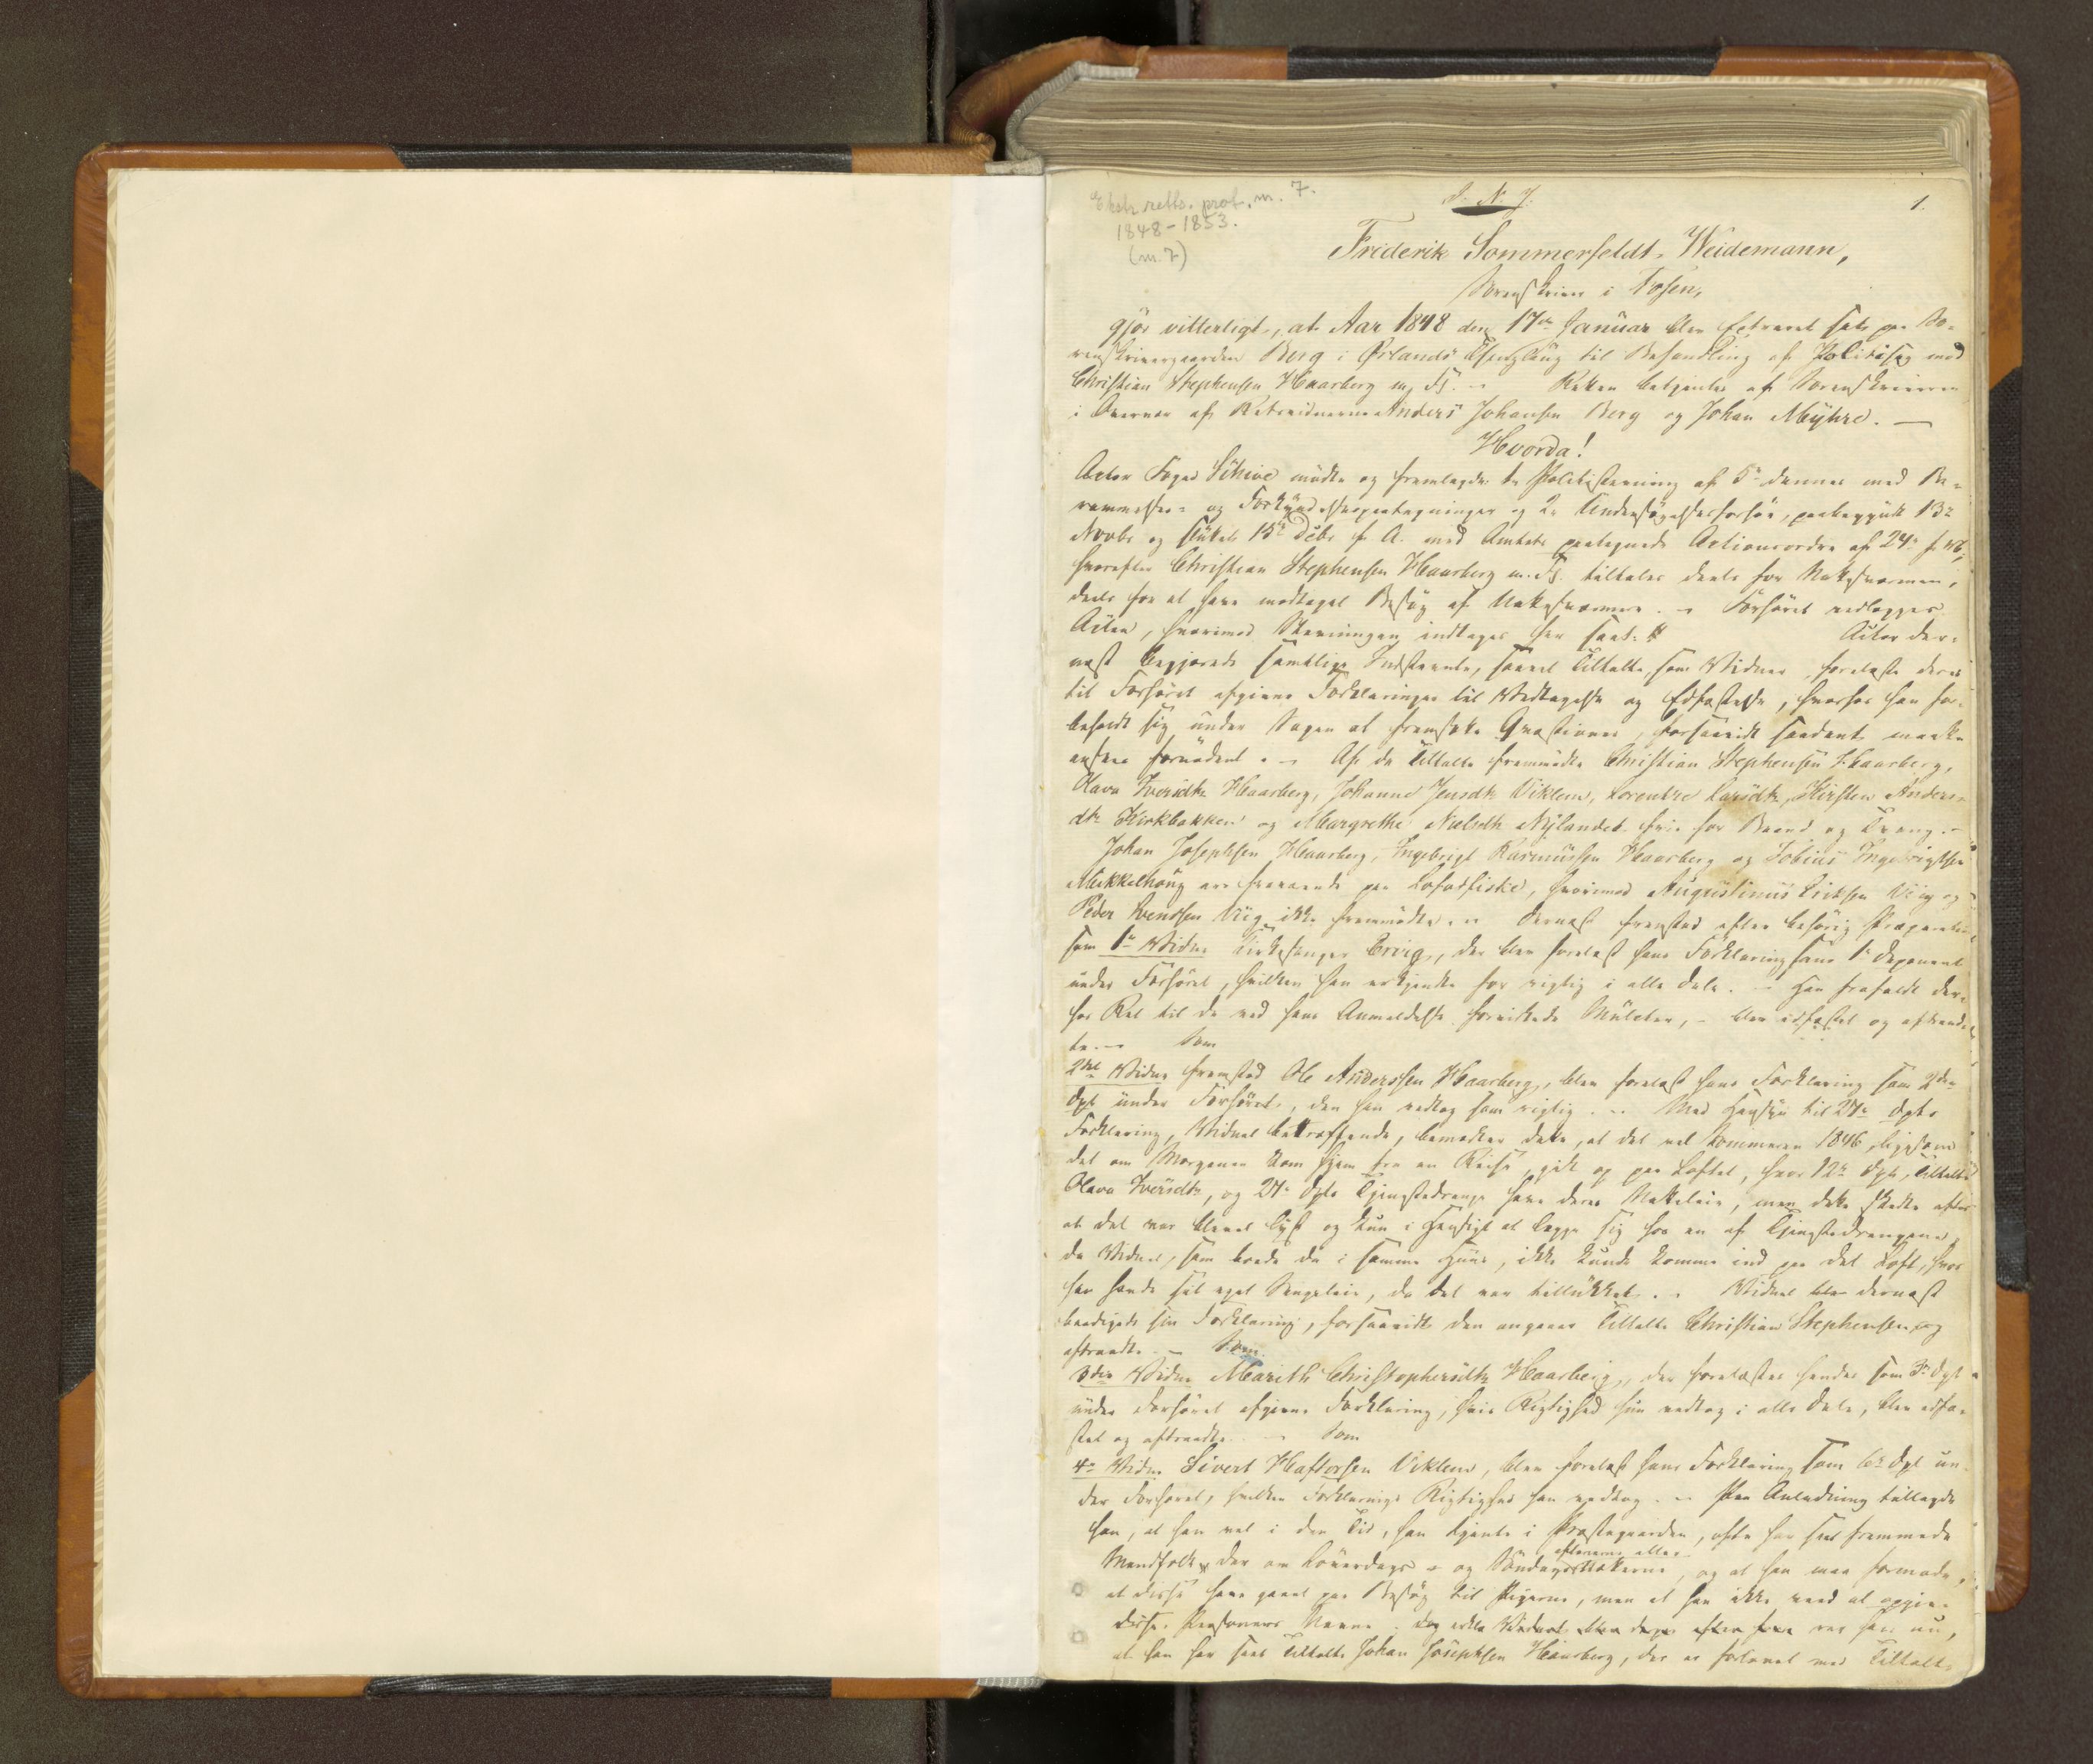 Ekstr. retts. prot. nr. 7.
1848-1853.
(nr. 7)
I. N. J.
1.
Friderik Sommerfeldt Weidemann,
Sorenskriver i Fosen,
gjør vitterligt, at Aar 1848 den 17de Januar blev Extraret sat paa So-
renskrivergaarden Berg i Ørlands Thinglaug til Behandling af Politisag mod
Christian Stephensen Haarberg m. Fl. – Retten betjentes af Sorenskriveren
i Overvær af Retsvidnerne Anders Johansen Berg og Johan Myhre. –
Hvorda!
Actor Foged Schive mødte og fremlagde 1. Politistevning af 5te dennes med Be-
rammelses- og Forkyndelsespaategninger og 2. Undersøgelsesforhør, paabegyndt 13de
Novbr og sluttet 15de Decbr f. A. med Amtets paategnede Actionsordre af 24de f. M.,
hvorefter Christian Stephensen Haarberg m. Fl. tiltales deels for Natesværmen,
deels for at have modtaget Besøg af Natesværmere. – Forhøret vedlægges
Acten, hvorimod Stevningen indtages her saal. Actor der-
næst begjærede samtlige Indstevnte, saavel Tiltalte, som Vidner, forelæste deres
til Forhøret afgivne Forklaringer til Vedtagelse og Edfæstelse, hvorhos han for-
beholdt sig under Sagen at fremsætte Qvæstioner, forsaavidt saadant maatte
ansees fornødent. – Af de Tiltalte fremmødte Christian Stephensen Haarberg,
Olava Iversdtr Haarberg, Johanne Jensdtr Viklem, Lorentze Larsdtr, Kirsten Anders-
dtr Kirkbakken og Margrethe Nielsdtr Nylandet frie for Baand og Tvang. –
Johan Josephsen Haarberg, Ingebrigt Rasmussen Haarberg og Tobias Ingebrigtsen
Mekkelhaug ere fraværende paa Lofotfiskie, hvorimod Augustinus Ericksen Viig og
Peder Svendsen Viig ikke fremmødte. – Dernæst fremstod efter behørig Præparation
som 1ste Vidne Kirkesanger Brig, der blev forelæst hans Forklaring som 1ste Deponent
under Forhøret, hvilken han erkjendte for rigtig i alle Dele. – Han frafaldt der-
hos Ret til de ved hans Anmeldelse forvirkede Mulcter, – blev edfæstet og aftraad-
te. – Som
2det Vidne fremstod Ole Anderssen Haarberg, blev forelæst hans Forklaring som 2den
Dpt under Forhøret, den han vedtog som rigtig. – Med Hensyn til 27de Dpts
Forklaring, Vidnet betræffende, bemærker dette, at det ved Sommeren 1846, ligesom
det om Morgenen kom hjem fra en Reise, gik op paa Loftet, hvor 12te Dpt, Tiltalte
Olava Iversdtr, og 27de Dpts Tjenestedrenge have deres Natteleie, men dette skedte efter
at det var blevet lyst og kun i Hensigt at lægge sig hos en af Tjenestedrengene,
da Vidnet, som boede da i samme Huus, ikke kunde komme ind paa det Loft, hvor
han havde sit eget Sengeleie, da det var tillukket. – Vidnet blev dernæst
beedigede sin Forklaring, forsaavidt den angaaer Tiltalte Christian Stephensen og
aftraadte. – Som
3die Vidne Marith Christophersdtr Haarberg, der forelæstes hendes som 3de Dpt
under Forhøret afgivne Forklaring, hvis Rigtighed hun vedtog i alle Dele, blev edfæ-
stet og aftraadte. – Som
4de Vidne Sivert Haftorsen Viklem, blev forelæst hans Forklaring som 6te Dpt un-
der Forhøret, hvilken Forklarings Rigtighed han vedtog. – Paa Anledning tillagde
han, at han vel i den Tid, han tjente i Præstegaarden, ofte har seet fremmede
aftenerne eller
Mandfolk der om Løverdags- og Søndagsnætterne, og at han maa formode,
at disse have gaaet paa Besøg til Pigerne, men at han ikke veed at opgive
disse Personers Navne. Dog
at han har seet Tiltalte Johan Josephsen Haarberg, der er forlovet med Tiltalte